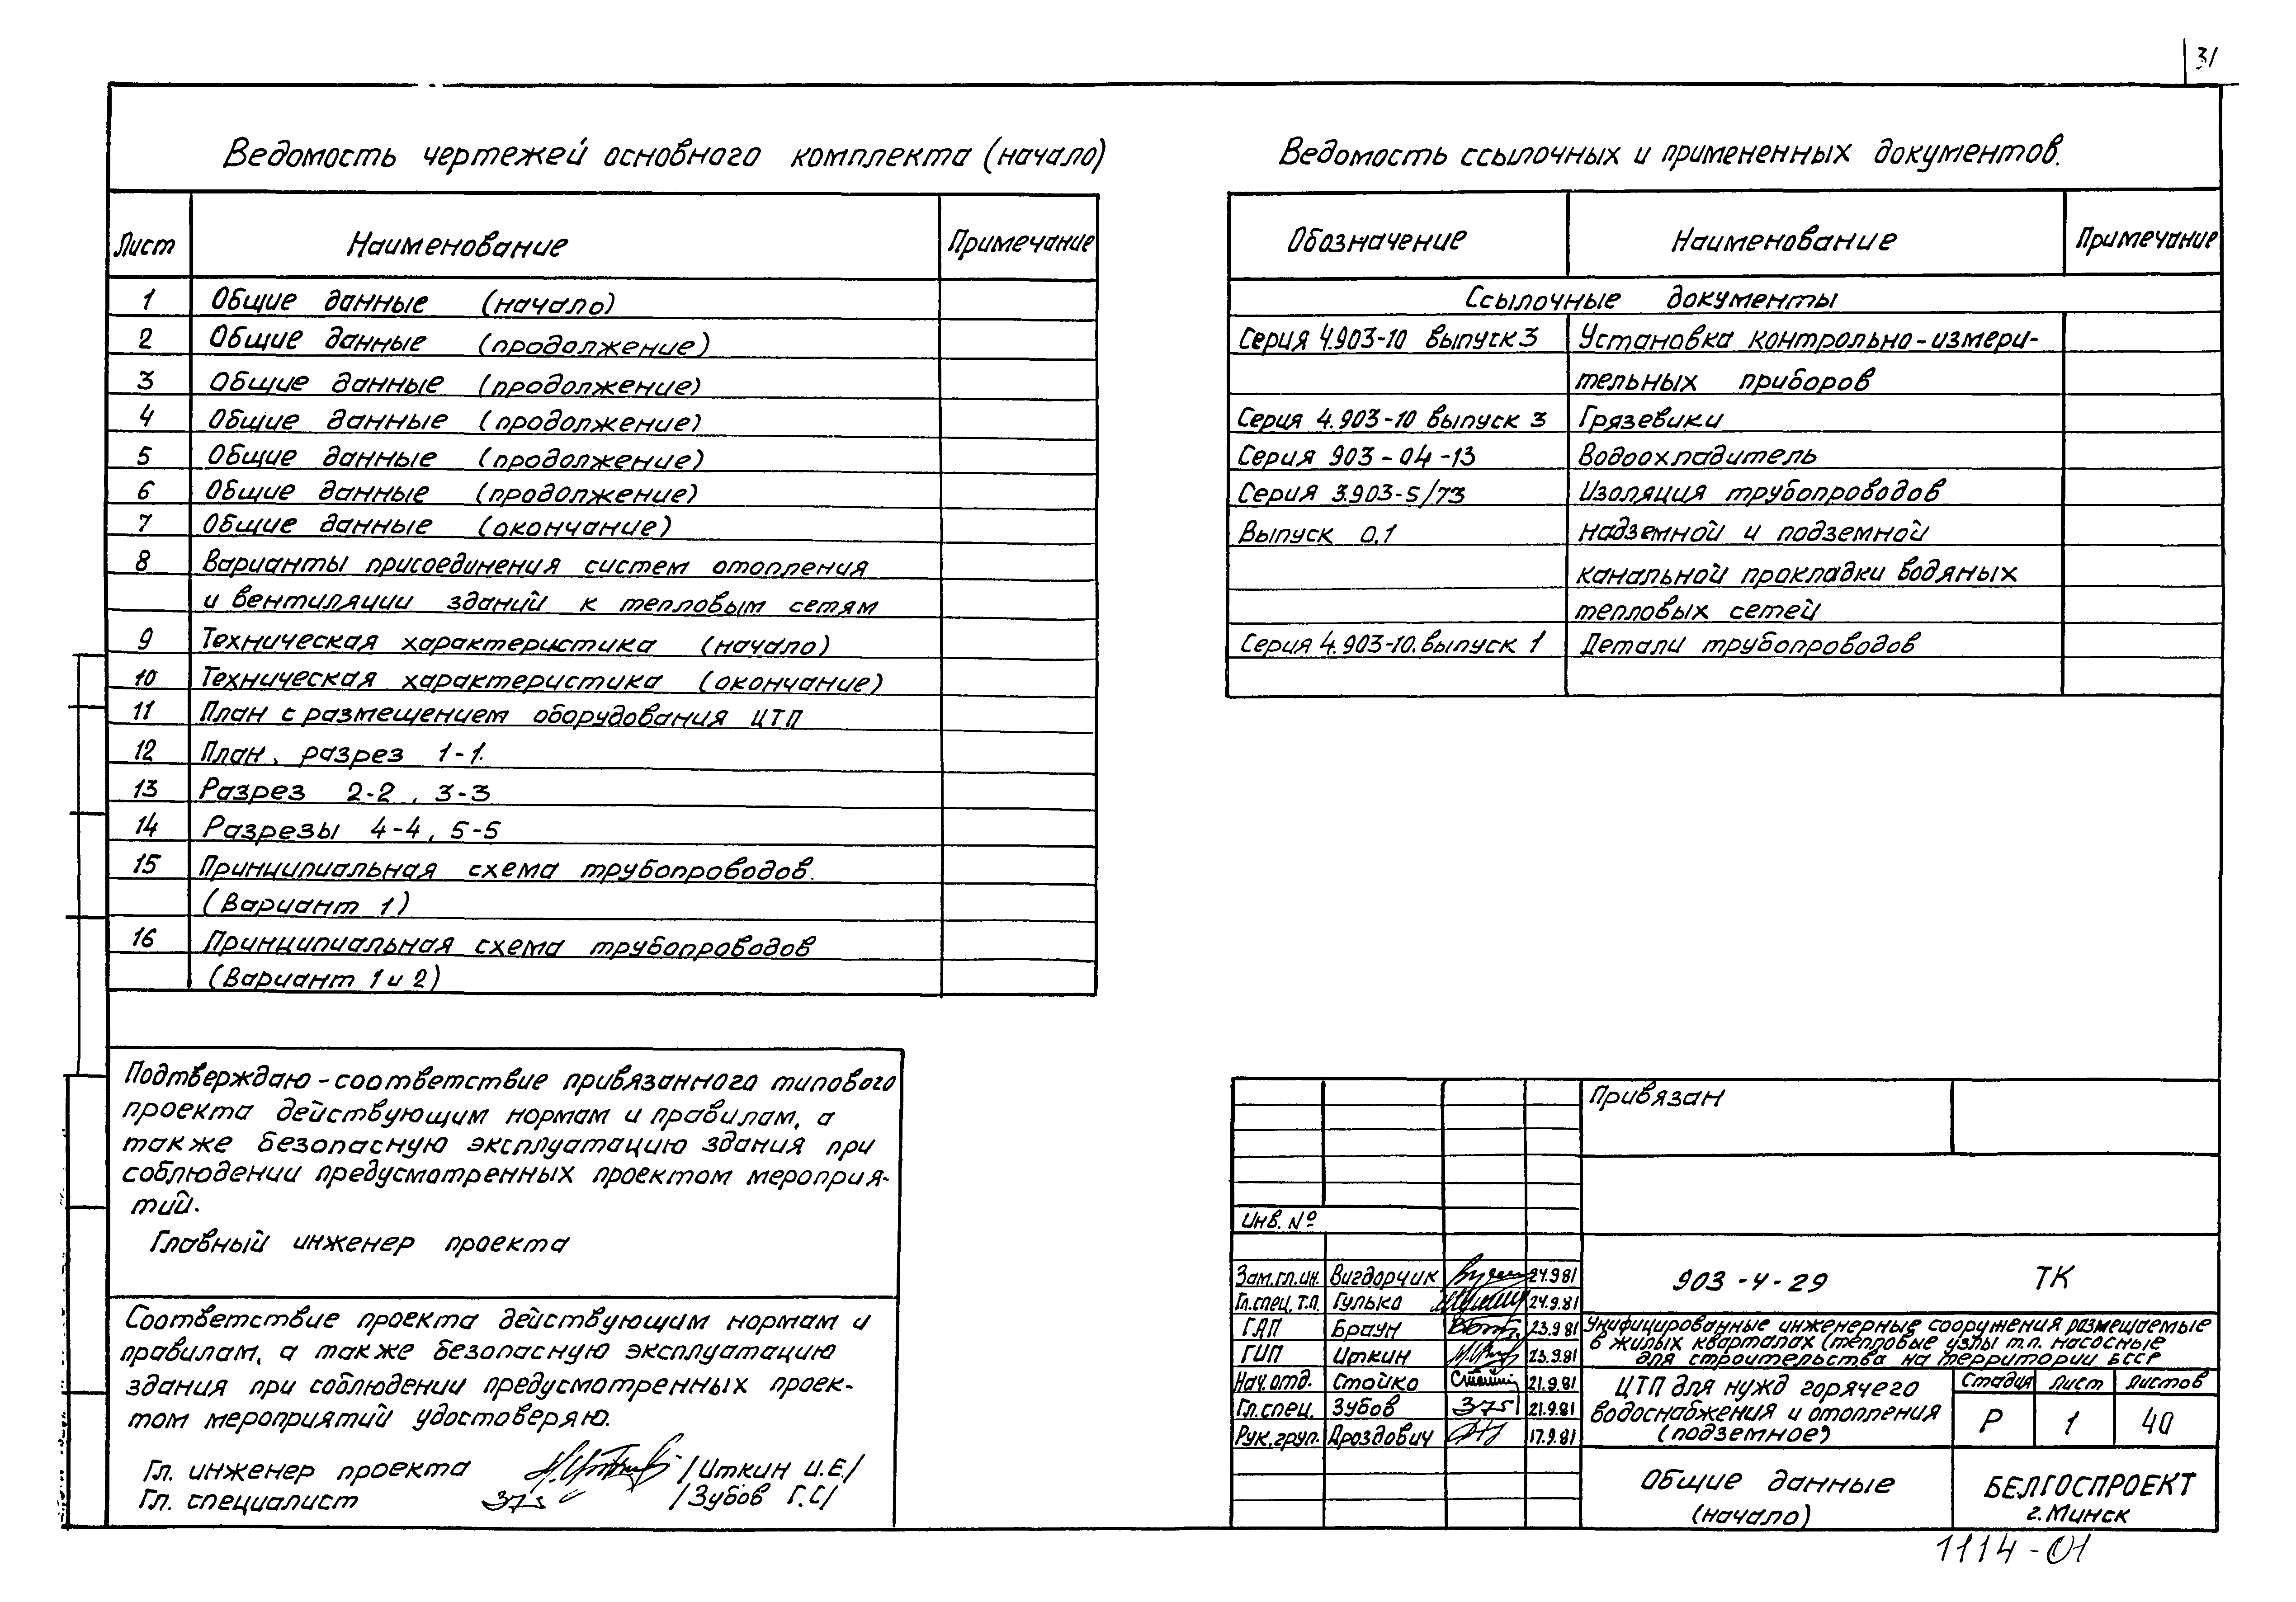 31
Ведомость чертежей основного комплекта (начало)
Лист Наименование Примечание
1 Общие данные (начало)
2 Общие данные (продолжение)
3 Общие данные (продолжение)
4 Общие данные (продолжение)
5 Общие данные (продолжение)
6 Общие данные (продолжение)
7 Общие данные (окончание)
8 Варианты присоединения систем отопления
и вентиляции зданий к тепловым сетям
9 Техническая характеристика (начало)
10 Техническая характеристика (окончание)
11 План с размещением оборудования ЦТП
12 План, разрез 1-1.
13 Разрез 2-2, 3-3
14 Разрезы 4-4, 5-5
15 Принципиальная схема трубопроводов.
(Вариант 1)
16 Принципиальная схема трубопроводов
(Вариант 1 и 2)
Ведомость ссылочных и примененных документов.
Обозначение Наименование Примечание
Ссылочные документы
Серия 4.903-10 выпуск 3 Установка контрольно-измери-
тельных приборов
Серия 4.903-10 выпуск 3 Грязевики
Серия 903-04-13 Водоохладитель
Серия 3.903-5/73 Изоляция трубопроводов
Выпуск 0.1 надземной и подземной
канальной прокладки водяных
тепловых сетей
Серия 4.903-10. выпуск 1 Детали трубопроводов
Подтверждаю-соответствие привязанного типового
проекта действующим нормам и правилам, а
также безопасную эксплуатацию здания при
соблюдении предусмотренных проектом мероприя-
тий.
Главный инженер проекта
Соответствие проекта действующим нормам и
правилам, а также безопасную эксплуатацию
здания при соблюдении предусмотренных проек-
том мероприятий удостоверяю.
Гл. инженер проекта /Иткин И.Е./
Гл. специалист /Зубов Г.С/
Привязан
Инв. №
Зам.гл.ин. Вигдорчик 24.9.81
Гл.спец.т.п. Гулько 24.9.81
ГАП Браун 23.9.81
ГИП Иткин 23.9.81
Нач.отд. Стойко 21.9.81
Гл.спец. Зубов 21.9.81
Рук.груп. Дроздович 17.9.81
903-4-29 ТК
Унифицированные инженерные сооружения размещаемые
в жилых кварталах (тепловые узлы т.п. насосные
для строительства на территории БССР
ЦТП для нужд горячего
водоснабжения и отопления
(подземное)
Стадия Лист Листов
Р 1 40
Общие данные
(начало)
БЕЛГОСПРОЕКТ
г. Минск
1114-01